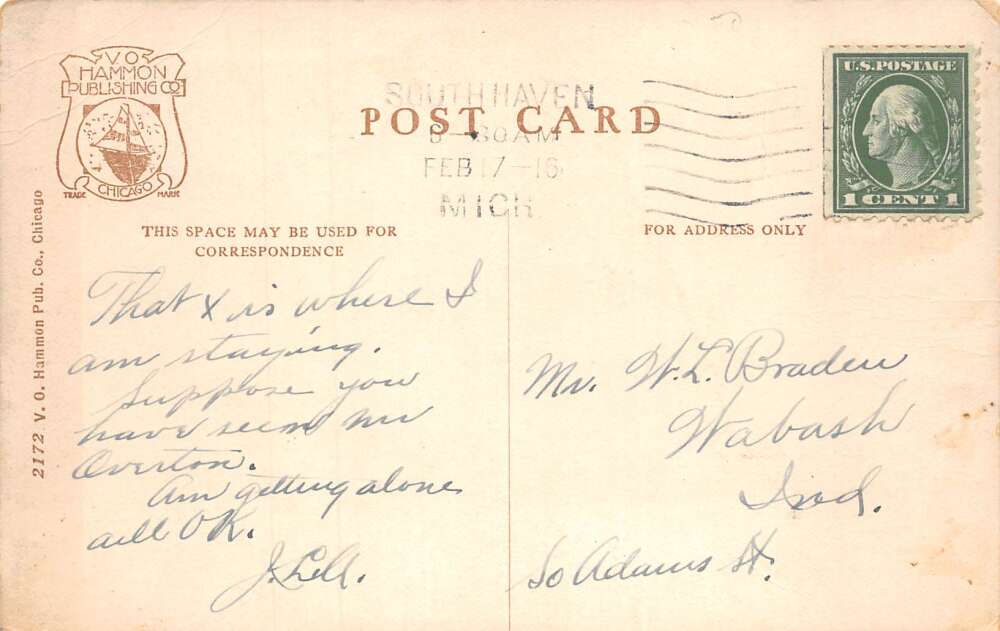 V O
HAMMON
PUBLISHING CO
CHICAGO
TRADE MARK
SOUTH HAVEN
POST CARD
8-30 AM
FEB 17-16
MICH
U.S. POSTAGE
1 CENT 1
THIS SPACE MAY BE USED FOR
CORRESPONDENCE
FOR ADDRESS ONLY
2172 V. O. Hammon Pub. Co., Chicago
That X is where I
am staying.
Suppose you
have seen Mr
Overton.
Am getting alone
all OK.
Mr. W. L. Braden
Wabash
Ind.
So Adams St.